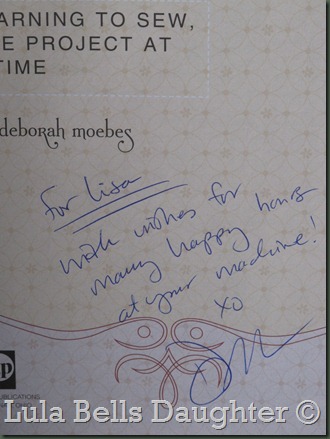 ARNING TO SEW,
E PROJECT AT
TIME
deborah moebes
for lisa
with wishes for
many happy hours
at your machine!
xo
P
PUBLICATIONS
Lula Bells Daughter ©